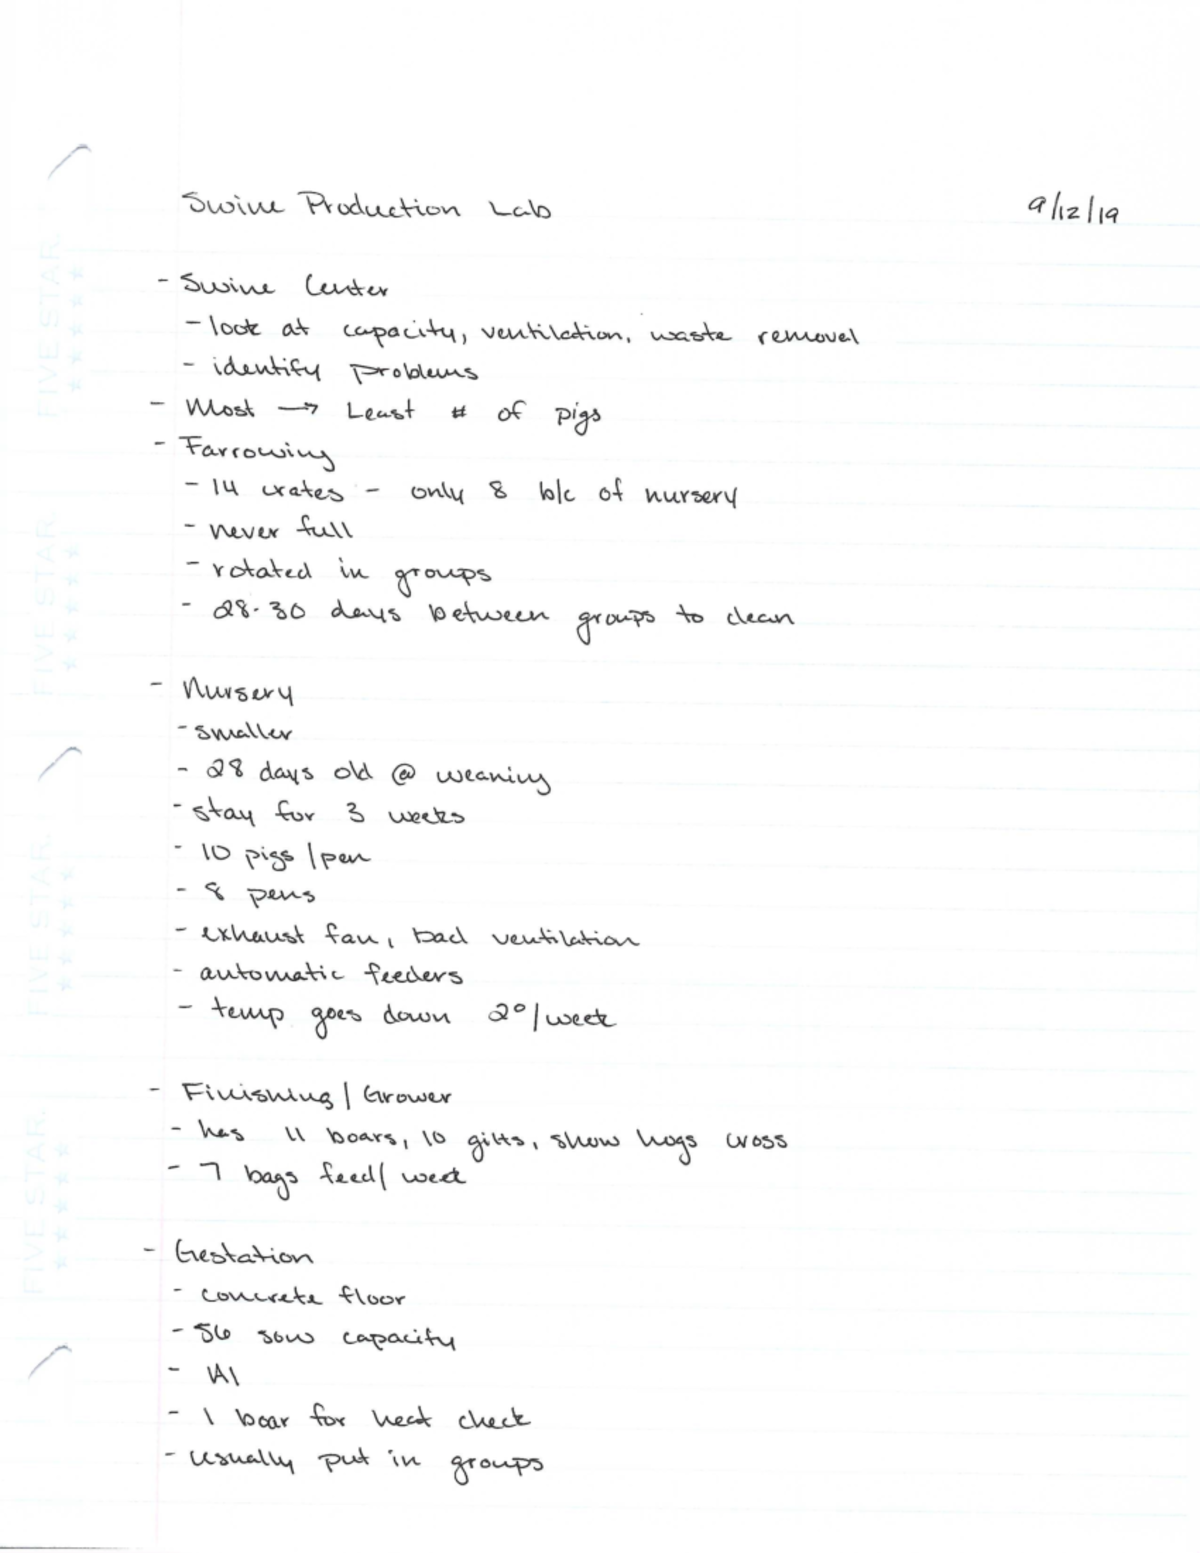 Swine Production Lab 9/12/19
- Swine Center
- look at capacity, ventilation, waste removal
- identify problems
- Most → Least # of pigs
- Farrowing
- 14 crates - only 8 b/c of nursery
- never full
- rotated in groups
- 28-30 days between groups to clean
- Nursery
- smaller
- 28 days old @ weaning
- stay for 3 weeks
- 10 pigs/pen
- 8 pens
- exhaust fan, bad ventilation
- automatic feeders
- temp goes down 2°/week
- Finishing/Grower
- has 11 boars, 10 gilts, show hogs cross
- 7 bags feed/week
- Gestation
- concrete floor
- 56 sow capacity
- AI
- 1 boar for heat check
- usually put in groups
FIVE STAR.
FIVE STAR.
FIVE STAR.
FIVE STAR.